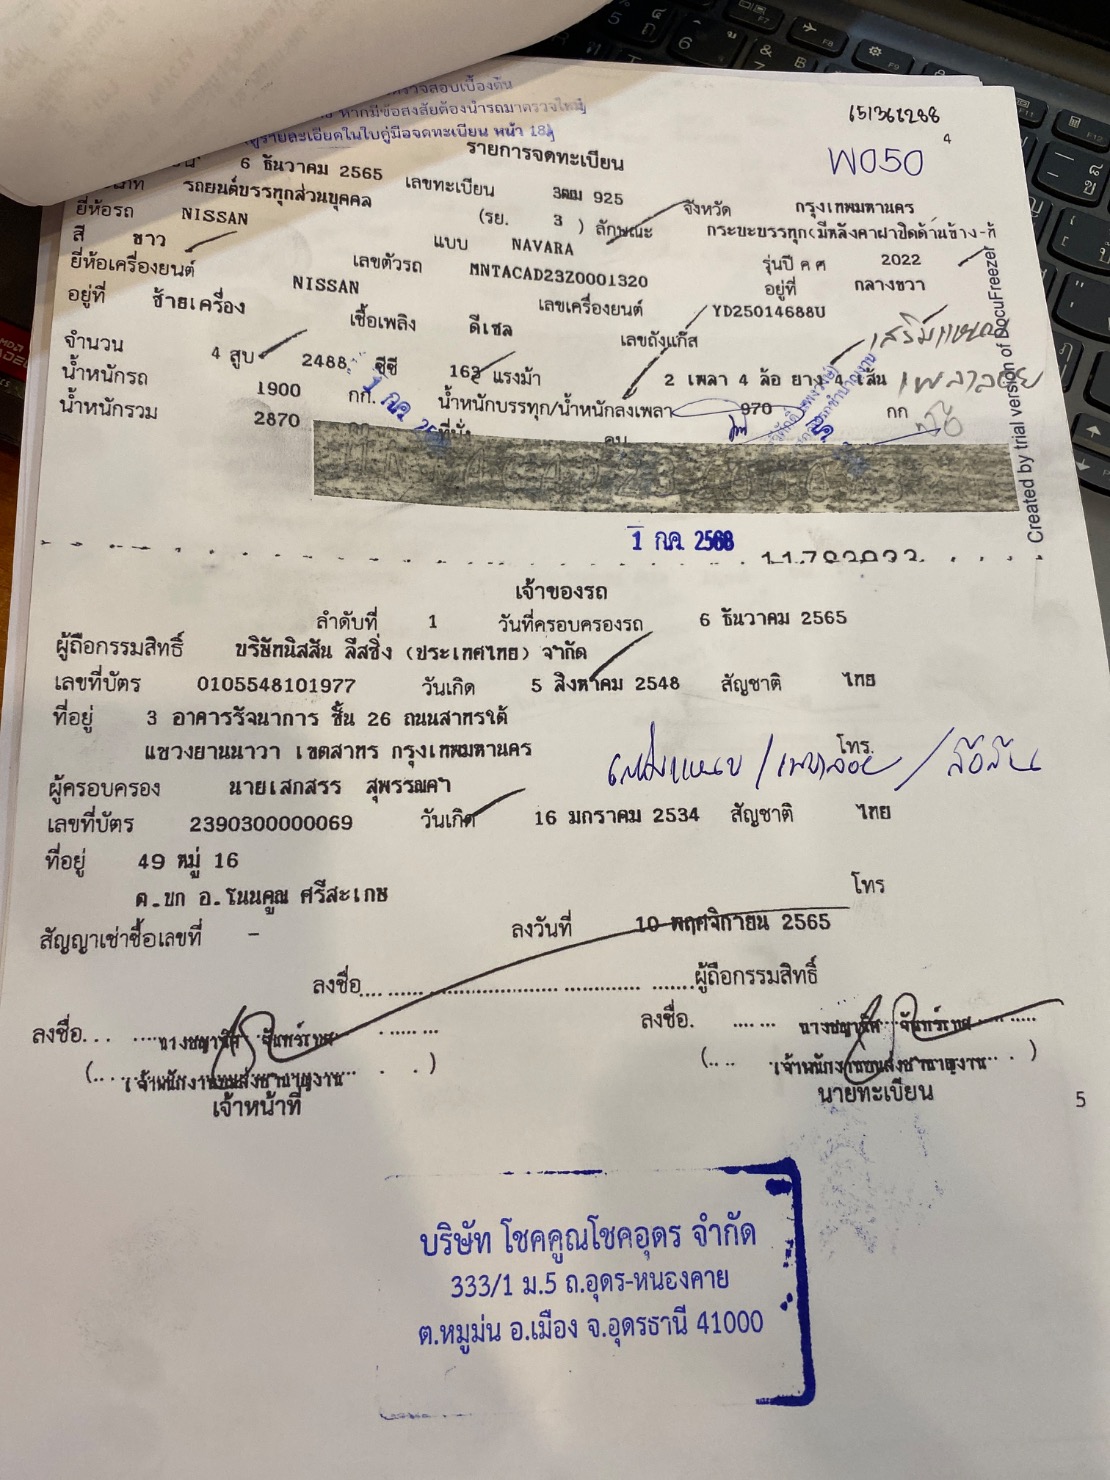 ตรวจสอบเบื้องต้น
หากมีข้อสงสัยต้องนำรถมาตรวจใหม่
(ดูรายละเอียดในใบคู่มือจดทะเบียน หน้า 18)
651366288
4
W050
รายการจดทะเบียน
6 ธันวาคม 2565 เลขทะเบียน 3ฒฌ 925 จังหวัด กรุงเทพมหานคร
รถยนต์บรรทุกส่วนบุคคล (รย. 3 ) ลักษณะ กระบะบรรทุก(มีหลังคาฝาปิดด้านข้าง-ท้
ยี่ห้อรถ NISSAN แบบ NAVARA รุ่นปี ค ศ 2022
สี ขาว เลขตัวรถ MNTACAD23Z0001320 อยู่ที่ กลางขวา
ยี่ห้อเครื่องยนต์ NISSAN เลขเครื่องยนต์ YD25014688U
อยู่ที่ ซ้ายเครื่อง เชื้อเพลิง ดีเซล เลขถังแก๊ส
เสริมแหนบ
จำนวน 4 สูบ 2488 ซีซี 163 แรงม้า 2 เพลา 4 ล้อ ยาง 4 เส้น
เพลาลอย
น้ำหนักรถ 1900 กก. น้ำหนักบรรทุก/น้ำหนักลงเพลา 970 กก
น้ำหนักรวม 2870 ที่นั่ง คน
Created by trial version of DocuFreezer
1 ก.ค. 2568
11702022
เจ้าของรถ
ลำดับที่ 1 วันที่ครอบครองรถ 6 ธันวาคม 2565
ผู้ถือกรรมสิทธิ์ บริษัทนิสสัน ลีสซิ่ง (ประเทศไทย) จำกัด
เลขที่บัตร 0105548101977 วันเกิด 5 สิงหาคม 2548 สัญชาติ ไทย
ที่อยู่ 3 อาคารรัจนาการ ชั้น 26 ถนนสาทรใต้
แขวงยานนาวา เขตสาทร กรุงเทพมหานคร โทร.
เสริมแหนบ / เพลาลอย / ล้อล้น
ผู้ครอบครอง นายเสกสรร สุพรรณคำ
เลขที่บัตร 2390300000069 วันเกิด 16 มกราคม 2534 สัญชาติ ไทย
ที่อยู่ 49 หมู่ 16
ต.บก อ.โนนคูณ ศรีสะเกษ โทร
สัญญาเช่าซื้อเลขที่ - ลงวันที่ 10 พฤศจิกายน 2565
ลงชื่อ ผู้ถือกรรมสิทธิ์
ลงชื่อ ลงชื่อ
(เจ้าพนักงานขนส่งชำนาญงาน) (เจ้าพนักงานขนส่งชำนาญงาน)
เจ้าหน้าที่ นายทะเบียน
5
บริษัท โชคคูณโชคอุดร จำกัด
333/1 ม.5 ถ.อุดร-หนองคาย
ต.หมูม่น อ.เมือง จ.อุดรธานี 41000